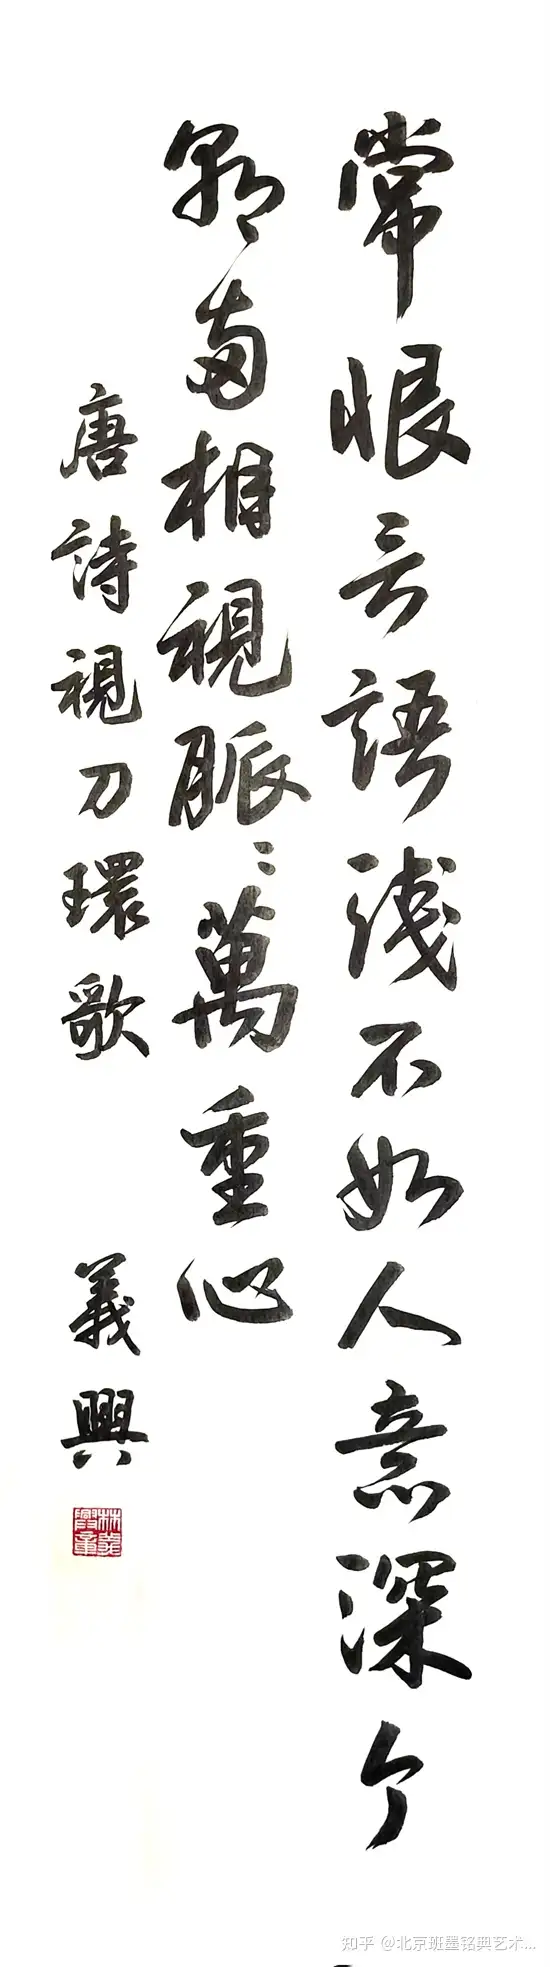 常恨言語淺不如人意深今
朝兩相視脈々萬重心
唐詩視刀環歌 義興
林義興章
知乎 @北京班墨铭典艺术...